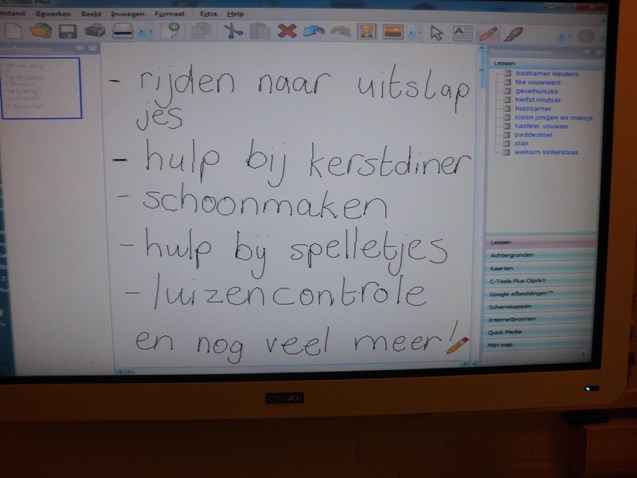 C-Tools Plus
Bewerken Beeld Invoegen Formaat Extra Help
- rijden naar uitstap
jes
- hulp bij kerstdiner
- schoonmaken
- hulp bij spelletjes
- luizencontrole
en nog veel meer!
Lessen
badkamer kleuters
fee vouwwerk
gevelhuisjes
herfst knutsel
huiskamer
icoon jongen en meisje
kasteel vouwen
paddestoel
stal
welkom sinterklaas
Lessen
Achtergronden
Kaarten
C-Tools Plus ClipArt
Google afbeeldingen™
Internetbronnen
Quick Media
Mijn map
CTOUCH